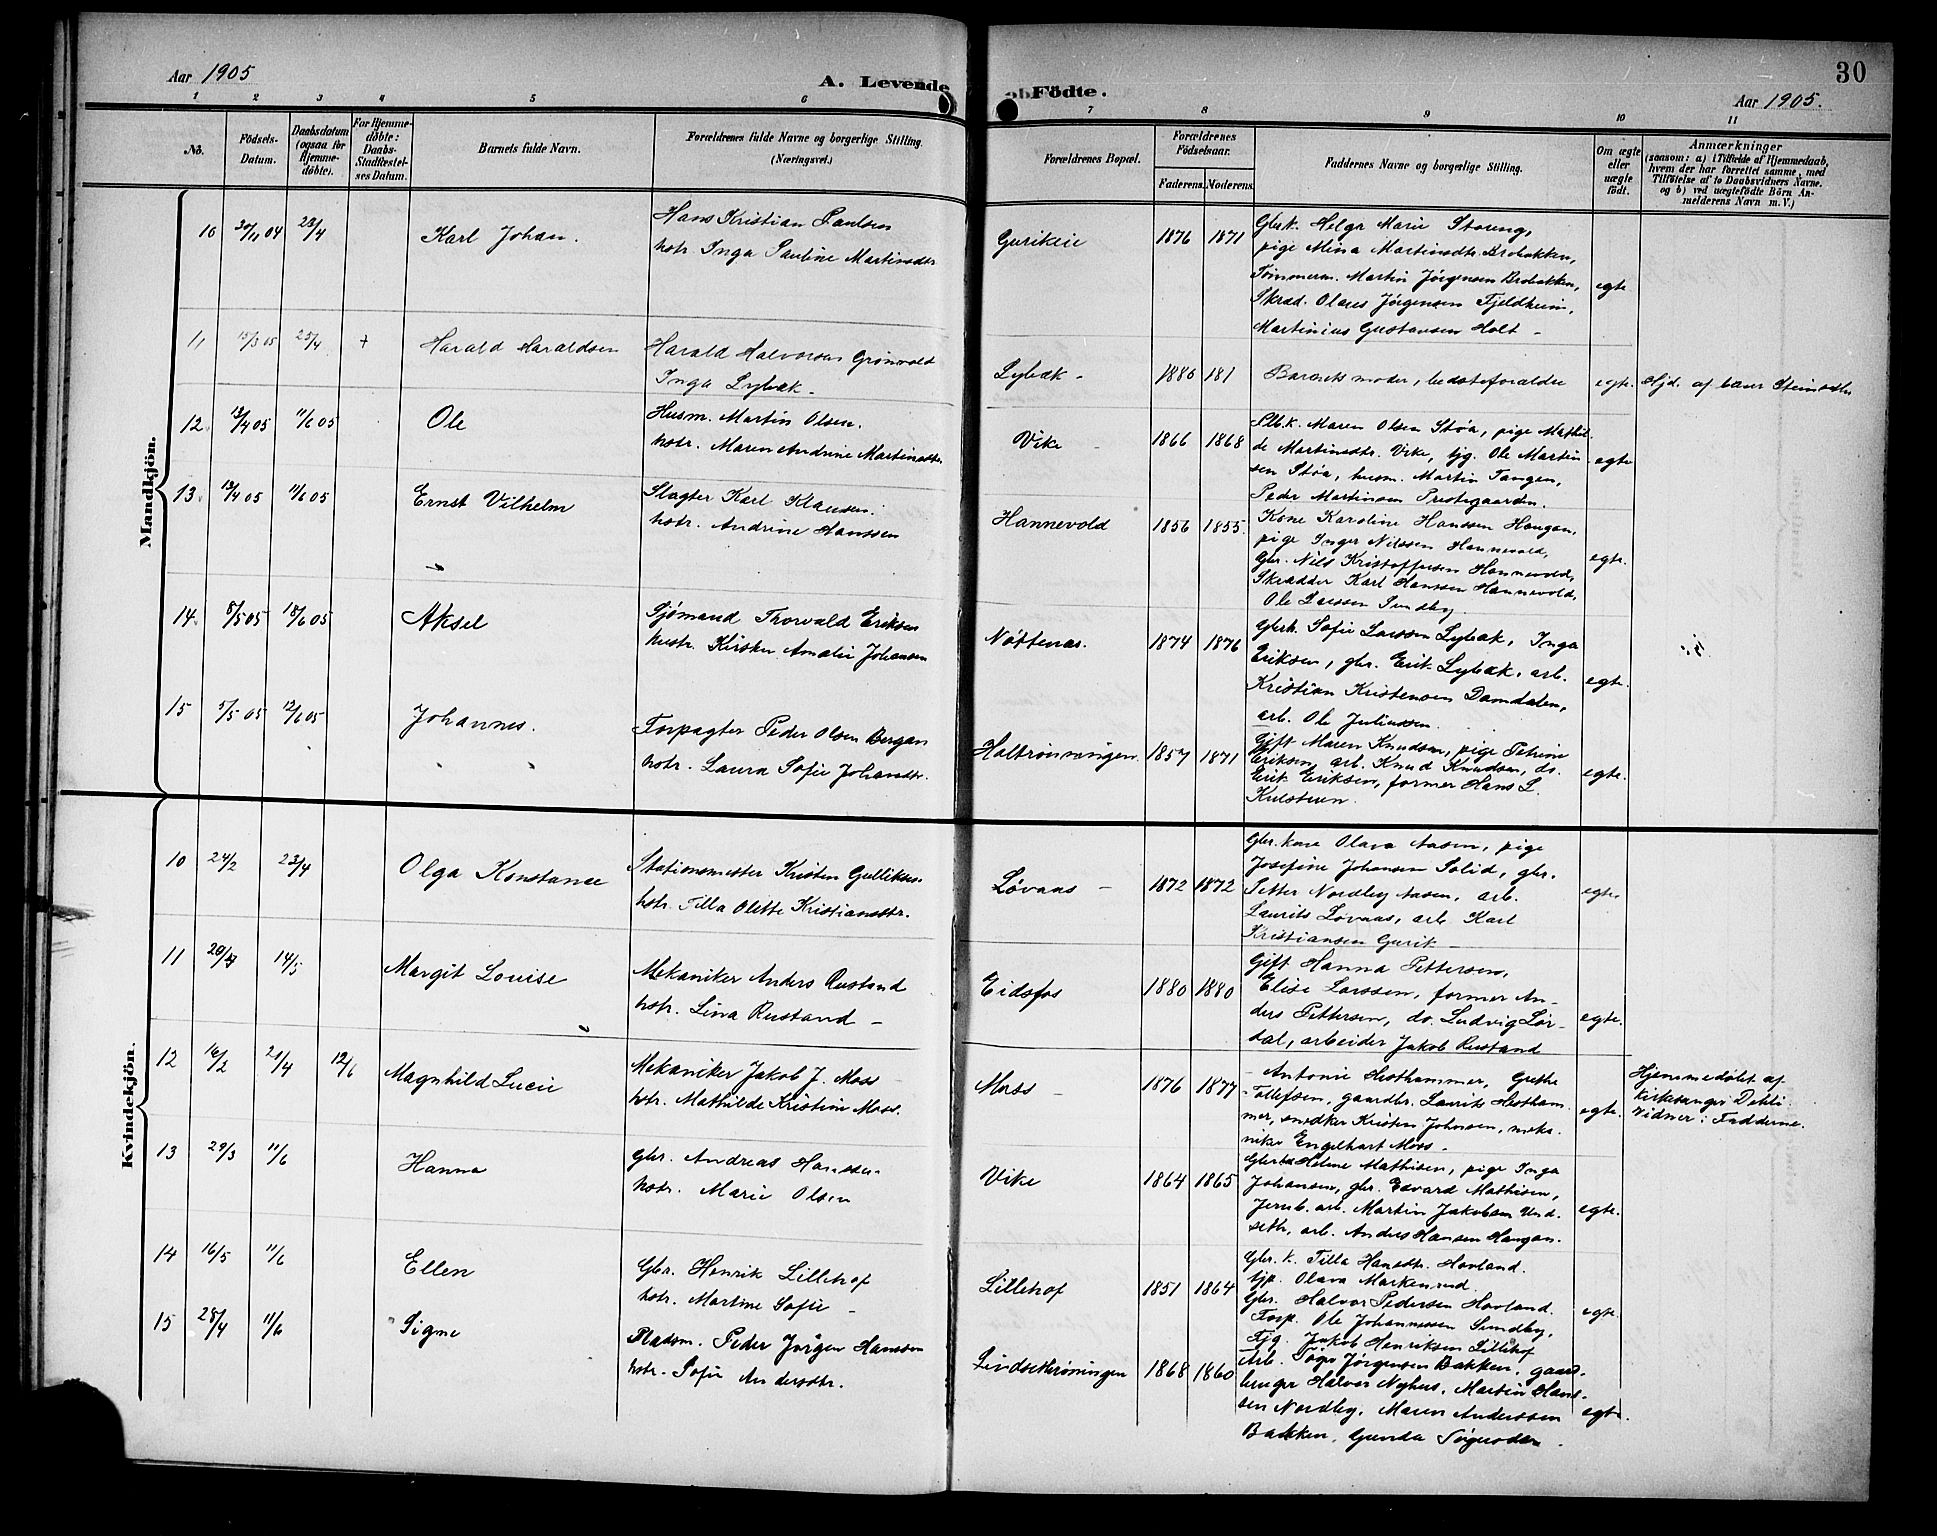 Aar 1905
A. Levende
Födte.
30
Aar 1905.
1 2 3 4 5 6 7 8 9 10 11
No.
Födsels-
Datum.
Daabsdatum
(ogsaa for
Hjemme-
döbte).
For Hjemme-
döbte:
Daabs-
Stadfæstel-
ses Datum.
Barnets fulde Navn.
Forældrenes fulde Navne og borgerlige Stilling.
(Næringsvei.)
Forældrenes Bopæl.
Forældrenes
Födselsaar.
Faderens. Moderens.
Faddernes Navne og borgerlige Stilling.
Om ægte
eller
uægte
födt.
Anmærkninger
(saasom: a) i Tilfælde af Hjemmedaab,
hvem der har forrettet samme, med
Tilföielse af to Daabsvidners Navne.
og b) ved uægtefödte Börn An-
melderens Navn m. V.)
Mandkjön.
10 30/11 04 23/4 Karl Johan.
Hans Kristian Paulsen
hstr. Inga Pauline Martinsdtr.
Gurikeie 1876 1871
Gbrk. Helga Marie Storeng,
pige Mina Martinsdtr. Brobakken,
Tømmerm. Martin Jørgensen Brobakken,
Skræd. Olaves Jørgensen Fjeldheim,
Martinius Gustavsen Holt -
egte
11 15/3 05 25/4 + Harald Haraldsen
Harald Halvorsen Grønvold
Inga Lybæk -
Lybæk - 1886 181
Barnets moder, bedsteforældre
egte. Hjd. af
12. 13/4 05 11/6 05 Ole
Husm. Martin Olsen.
hstr. Maren Andrine Martinsdtr.
Vike - 1866 1868
Maren Olsen Støa, pige Mathil-
de Martinsdtr. Vike, tjg. Ole Martin
sen Støa, husm. Martin Tangen,
Peder Martinsen Prestegaarden.
egte
13. 13/4 05 11/6 05 Ernst Vilhelm
Slagter Karl Klausen.
hstr. Andrine Hanssen
Hannevold 1856 1855.
Kone Karoline Hanssen Haugan,
pige Inger Nilssen Hannevold,
Gbr. Nils Kristoffersen Hannevold,
Skrædder Karl Hanssen Hannevold,
Ole Larssen Sundby.
egte.
14. 8/5 05 18/6 05 Aksel
Sjømand Thorvald Eriksen
hustr. Kirsten Amalie Johansen
Nøttenæs. 1874 1876
Gbrk. Sofie Larssen Lybæk, Inga
Eriksen, gbr. Erik Lybæk, arb.
Kristian Kristensen Damdalen,
arb. Ole Juliussen.
egte.
15 5/5 05 12/6 05 Johannes.
Forpagter Peder Olsen Bergan
hstr. Laura Sofie Johansdtr.
Holtrønningen 1857 1871
Gift Maren Knudsen, pige Petrine
Eriksen, arb. Knud Knudsen, do.
Erik Eriksen, former Hans L.
Kulsteen.
egte.
Kvindekjön.
10 24/2 23/4 Olga Konstance
Stationsmester Kristen Gulliksen.
hstr. Tilla Olette Kristiansdtr.
Løvaas - 1872 1872
Gbr. kone Olava Aasen, pige
Josefine Johansen Solid, gbr.
Petter Nordby Aasen, arb.
Laurits Løvaas, arb. Karl
Kristiansen Gurik -
egte.
11 14/5 Margit Louise
Mekaniker Anders Rustand
hstr. Lina Rustand -
Eidsfos 1880 1880
Gift Hanna Pettersen,
Elise Larssen, former An-
ders Pettersen, do. Ludvig Lør-
dal, arbeider Jakob Rustand
egte.
12 16/2 21/4 12/6 Magnhild Lucie
Mekaniker Jakob J. Moss
hstr. Mathilde Kristine Moss.
Moss - 1876 1877
- Antonie Hesthammer, Grethe
Tollefsen, gaardbr. Laurits Hestham-
mer, snedker Kristen Johnsen, meka-
niker Engelhart Moss -
egte.
Hjemmedøbt af
kirkesanger Dehli.
Vidner: Fadderne.
13 29/3 11/6 Hanna
Gbr. Andreas Hanssen.
hstr. Marie Olsen
Vike 1864 1865
Helene Mathisen, pige Inga
Johansen, gbr. Edvard Mathisen,
Jernb. arb. Martin Jakobsen Und-
seth, arb. Anders Hansen Haugan.
egte.
14 16/5 11/6 Ellen
Gbr. Henrik Lillehof
hstr. Martine Sofie -
Lillehof 1851 1864
Gbr. k. Tilla Hansdtr. Hovland.
tjp. Olava Markerud
Gbr. Halvor Pedersen Hovland.
Forp. Ole Johannessen Sundby,
Tjg. Jakob Henriksen Lillehof
egte.
15 28/4 11/6 Signe
Pladsm. Peder Jørgen Hanssen
hstr. Sofie Andersdtr.
Lindsetrøningen 1868 1860
Arb. Jørgensen Bakken, gaard-
bruger Halvor Nyhus, Martin Hans-
sen Nordby, Maren Anderssen
Bakken, Gunda
egte.